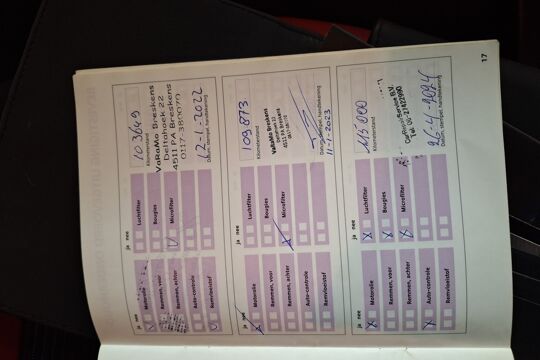 17
ja nee
Motorolie
Remmen, voor
Remmen, achter
Auto-controle
Remvloeistof
ja nee
Luchtfilter
Bougies
Microfilter
103649
Kilometerstand
VaRaMo Breskens
Deltahoek 22
4511 PA Breskens
0117-380070
12-1-2022
Datum, stempel, handtekening
ja nee
Motorolie
Remmen, voor
Remmen, achter
Auto-controle
Remvloeistof
ja nee
Luchtfilter
Bougies
Microfilter
109873
Kilometerstand
VaRaMo Breskens
Deltahoek 22
4511 PA Breskens
Datum, stempel, handtekening
11-1-2023
ja nee
Motorolie
Remmen, voor
Remmen, achter
Auto-controle
Remvloeistof
ja nee
Luchtfilter
Bougies
Microfilter
115000
Kilometerstand
Service B.V.
Datum, stempel, handtekening